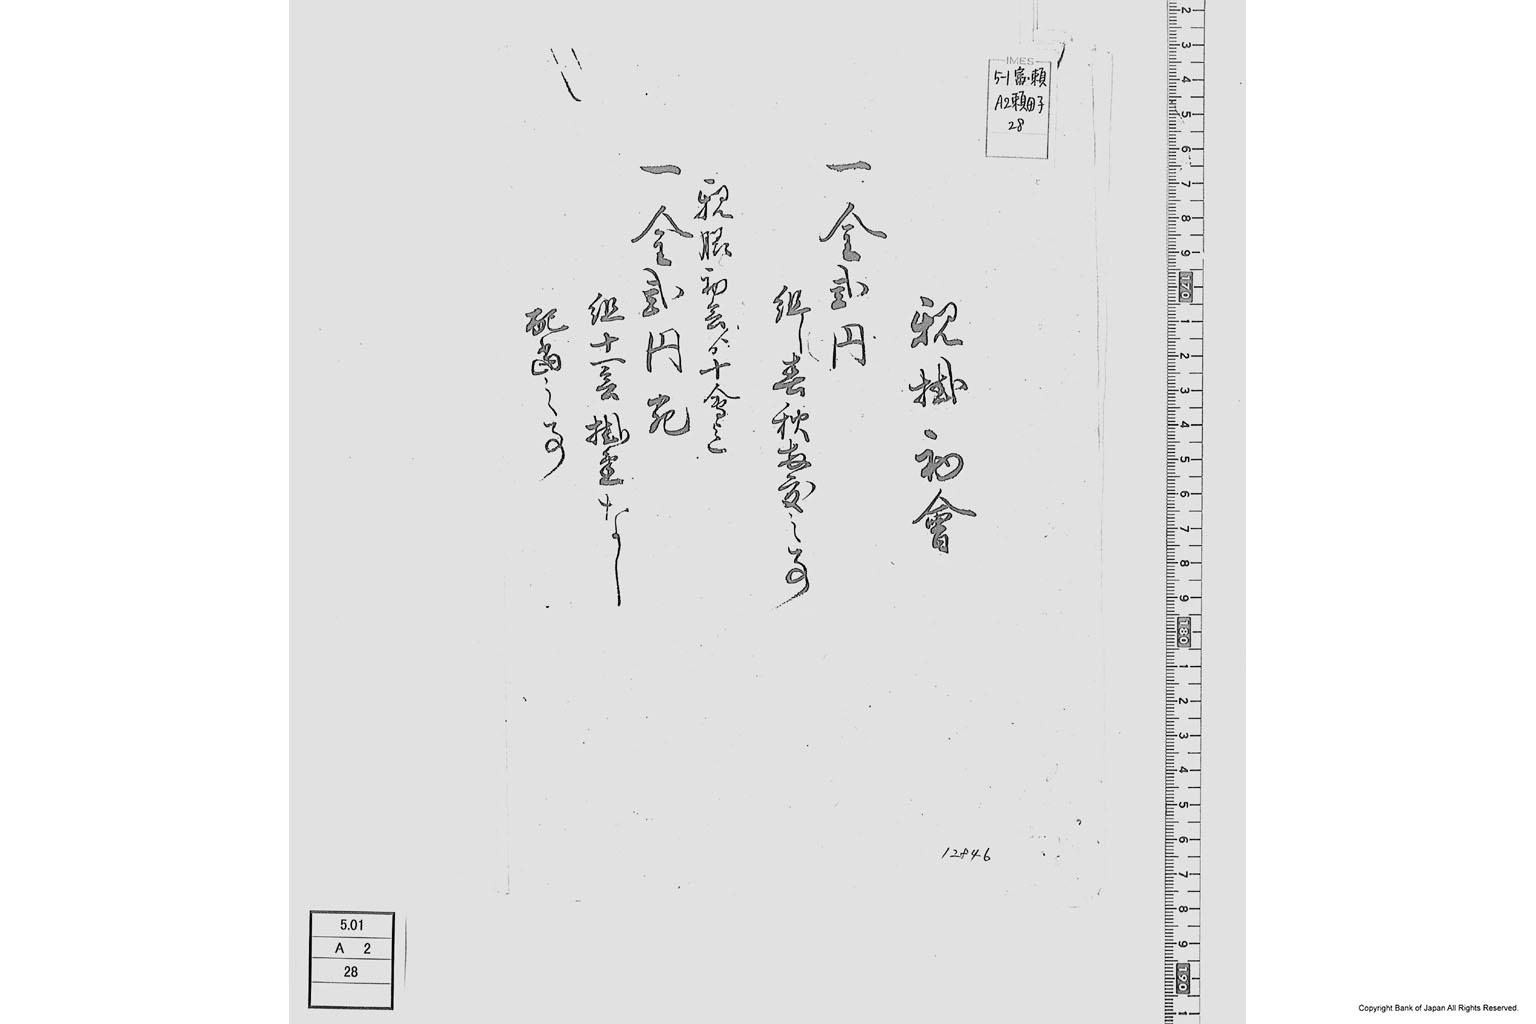 IMES
5-1富・頼
A2頼田子
28
親掛初會
一金弐円
組し春秋両度之事
親賑初会ゟ十會迄
一金弐円宛
組十一会掛金なし
配当之事
12846
5.01
A 2
28
Copyright Bank of Japan All Rights Reserved.